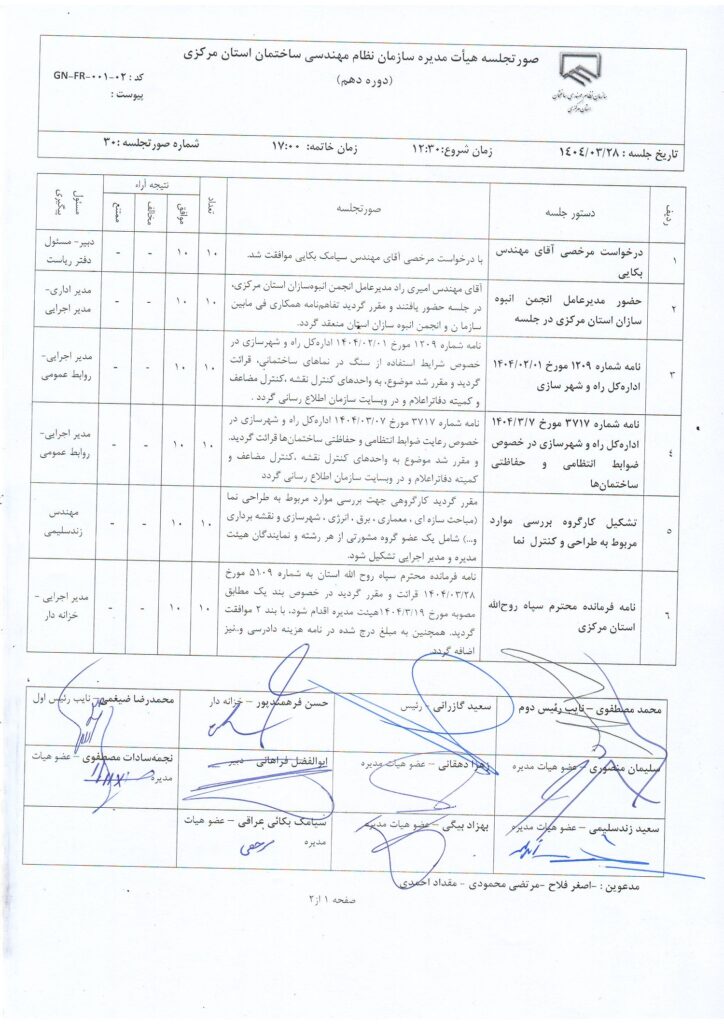 صورتجلسه هیأت مدیره سازمان نظام مهندسی ساختمان استان مرکزی
(دوره دهم)
کد : GN-FR-۰۰۱-۰۲
پیوست :
سازمان نظام مهندسی ساختمان
استان مرکزی
تاریخ جلسه : ۱۴۰۴/۰۳/۲۸
زمان شروع: ۱۲:۳۰
زمان خاتمه: ۱۷:۰۰
شماره صورتجلسه :۳۰
ردیف
دستور جلسه
صورتجلسه
تعداد
نتیجه آراء
موافق
مخالف
ممتنع
مسئول
پیگیری
۱
درخواست مرخصی آقای مهندس
بکایی
با درخواست مرخصی آقای مهندس سیامک بکایی موافقت شد.
۱۰
۱۰
-
-
دبیر- مسئول
دفتر ریاست
۲
حضور مدیرعامل انجمن انبوه
سازان استان مرکزی در جلسه
آقای مهندس امیری راد مدیرعامل انجمن انبوه‌سازان استان مرکزی،
در جلسه حضور یافتند و مقرر گردید تفاهم‌نامه همکاری فی مابین
سازما ن و انجمن انبوه سازان استان منعقد گردد.
۱۰
۱۰
-
-
مدیر اداری-
مدیر اجرایی
۳
نامه شماره ۱۲۰۹ مورخ ۱۴۰۴/۰۲/۰۱
اداره‌کل راه و شهر سازی
نامه شماره ۱۲۰۹ مورخ ۱۴۰۴/۰۲/۰۱ اداره‌کل راه و شهرسازی در
خصوص شرایط استفاده از سنگ در نماهای ساختمانی، قرائت
گردید و مقرر شد موضوع، به واحدهای کنترل نقشه ،کنترل مضاعف
و کمیته دفاتراعلام و در وبسایت سازمان اطلاع رسانی گردد .
۱۰
۱۰
-
-
مدیر اجرایی-
روابط عمومی
۴
نامه شماره ۳۷۱۷ مورخ ۱۴۰۴/۳/۷
اداره‌کل راه و شهرسازی در خصوص
ضوابط انتظامی و حفاظتی
ساختمان‌ها
نامه شماره ۳۷۱۷ مورخ ۱۴۰۴/۰۳/۰۷ اداره‌کل راه و شهرسازی در
خصوص رعایت ضوابط انتظامی و حفاظتی ساختمان‌ها قرائت گردید.
و مقرر شد موضوع به واحدهای کنترل نقشه ،کنترل مضاعف و
کمیته دفاتراعلام و در وبسایت سازمان اطلاع رسانی گردد
۱۰
۱۰
-
-
مدیر اجرایی-
روابط عمومی
۵
تشکیل کارگروه بررسی موارد
مربوط به طراحی و کنترل نما
مقرر گردید کارگروهی جهت بررسی موارد مربوط به طراحی نما
(مباحث سازه ای ، معماری ، برق ، انرژی ، شهرسازی و نقشه برداری
و...) شامل یک عضو گروه مشورتی از هر رشته و نمایندگان هیئت
مدیره و مدیر اجرایی تشکیل شود.
۱۰
۱۰
-
-
مهندس
زندسلیمی
۶
نامه فرمانده محترم سپاه روح‌الله
استان مرکزی
نامه فرمانده محترم سپاه روح الله استان به شماره ۵۱۰۹ مورخ
۱۴۰۴/۰۳/۲۸ قرائت و مقرر گردید در خصوص بند یک مطابق
مصوبه مورخ ۱۴۰۴/۳/۱۹هیئت مدیره اقدام شود. با بند ۲ موافقت
گردید. همچنین به مبلغ درج شده در نامه هزینه دادرسی و.نیز
اضافه گردد.
۱۰
۱۰
-
-
مدیر اجرایی -
خزانه دار
محمد مصطفوی – نایب رئیس دوم
سعید گازرانی - رئیس
حسن فرهمندپور - خزانه دار
محمدرضا ضیغمی – نایب رئیس اول
سلیمان منصوری – عضو هیات مدیره
زهرا دهقانی – عضو هیات مدیره
ابوالفضل فراهانی – دبیر
نجمه‌سادات مصطفوی – عضو هیات
مدیره
سعید زندسلیمی – عضو هیات مدیره
بهزاد بیگی – عضو هیات مدیره
سیامک بکائی عراقی – عضو هیات
مدیره
مرخصی
مدعوین : -اصغر فلاح -مرتضی محمودی - مقداد احمدی
صفحه ۱ از۲